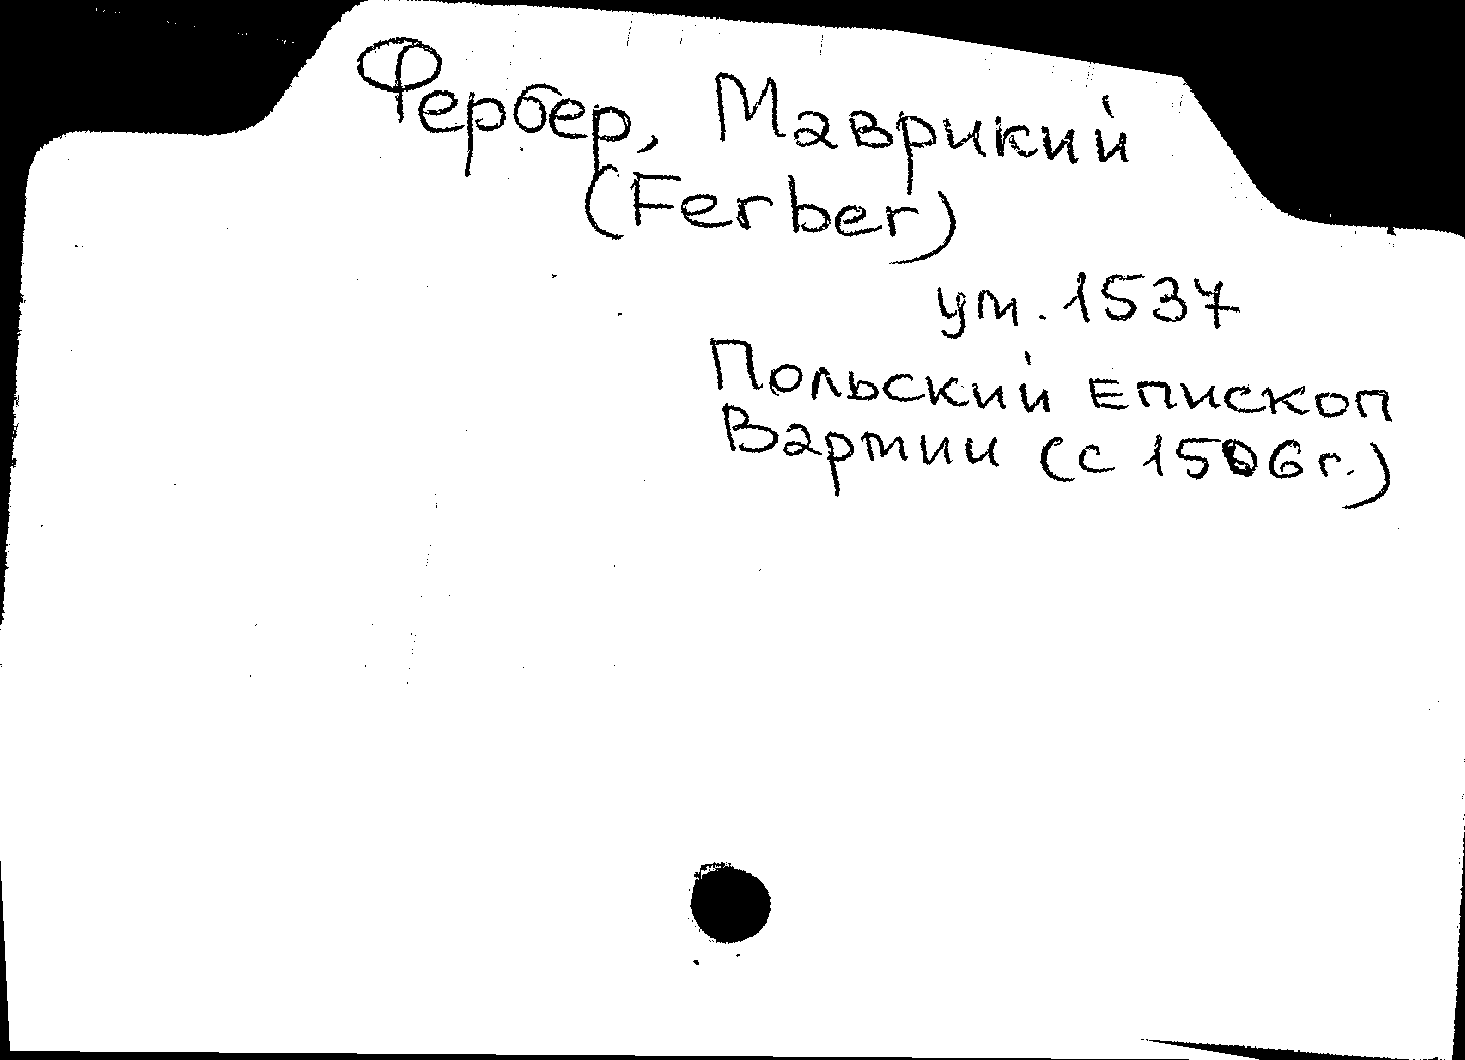 Фербер, Маврикий
(Ferber)
ум. 1537
Польский епископ
Вармии (с 1506 г.)